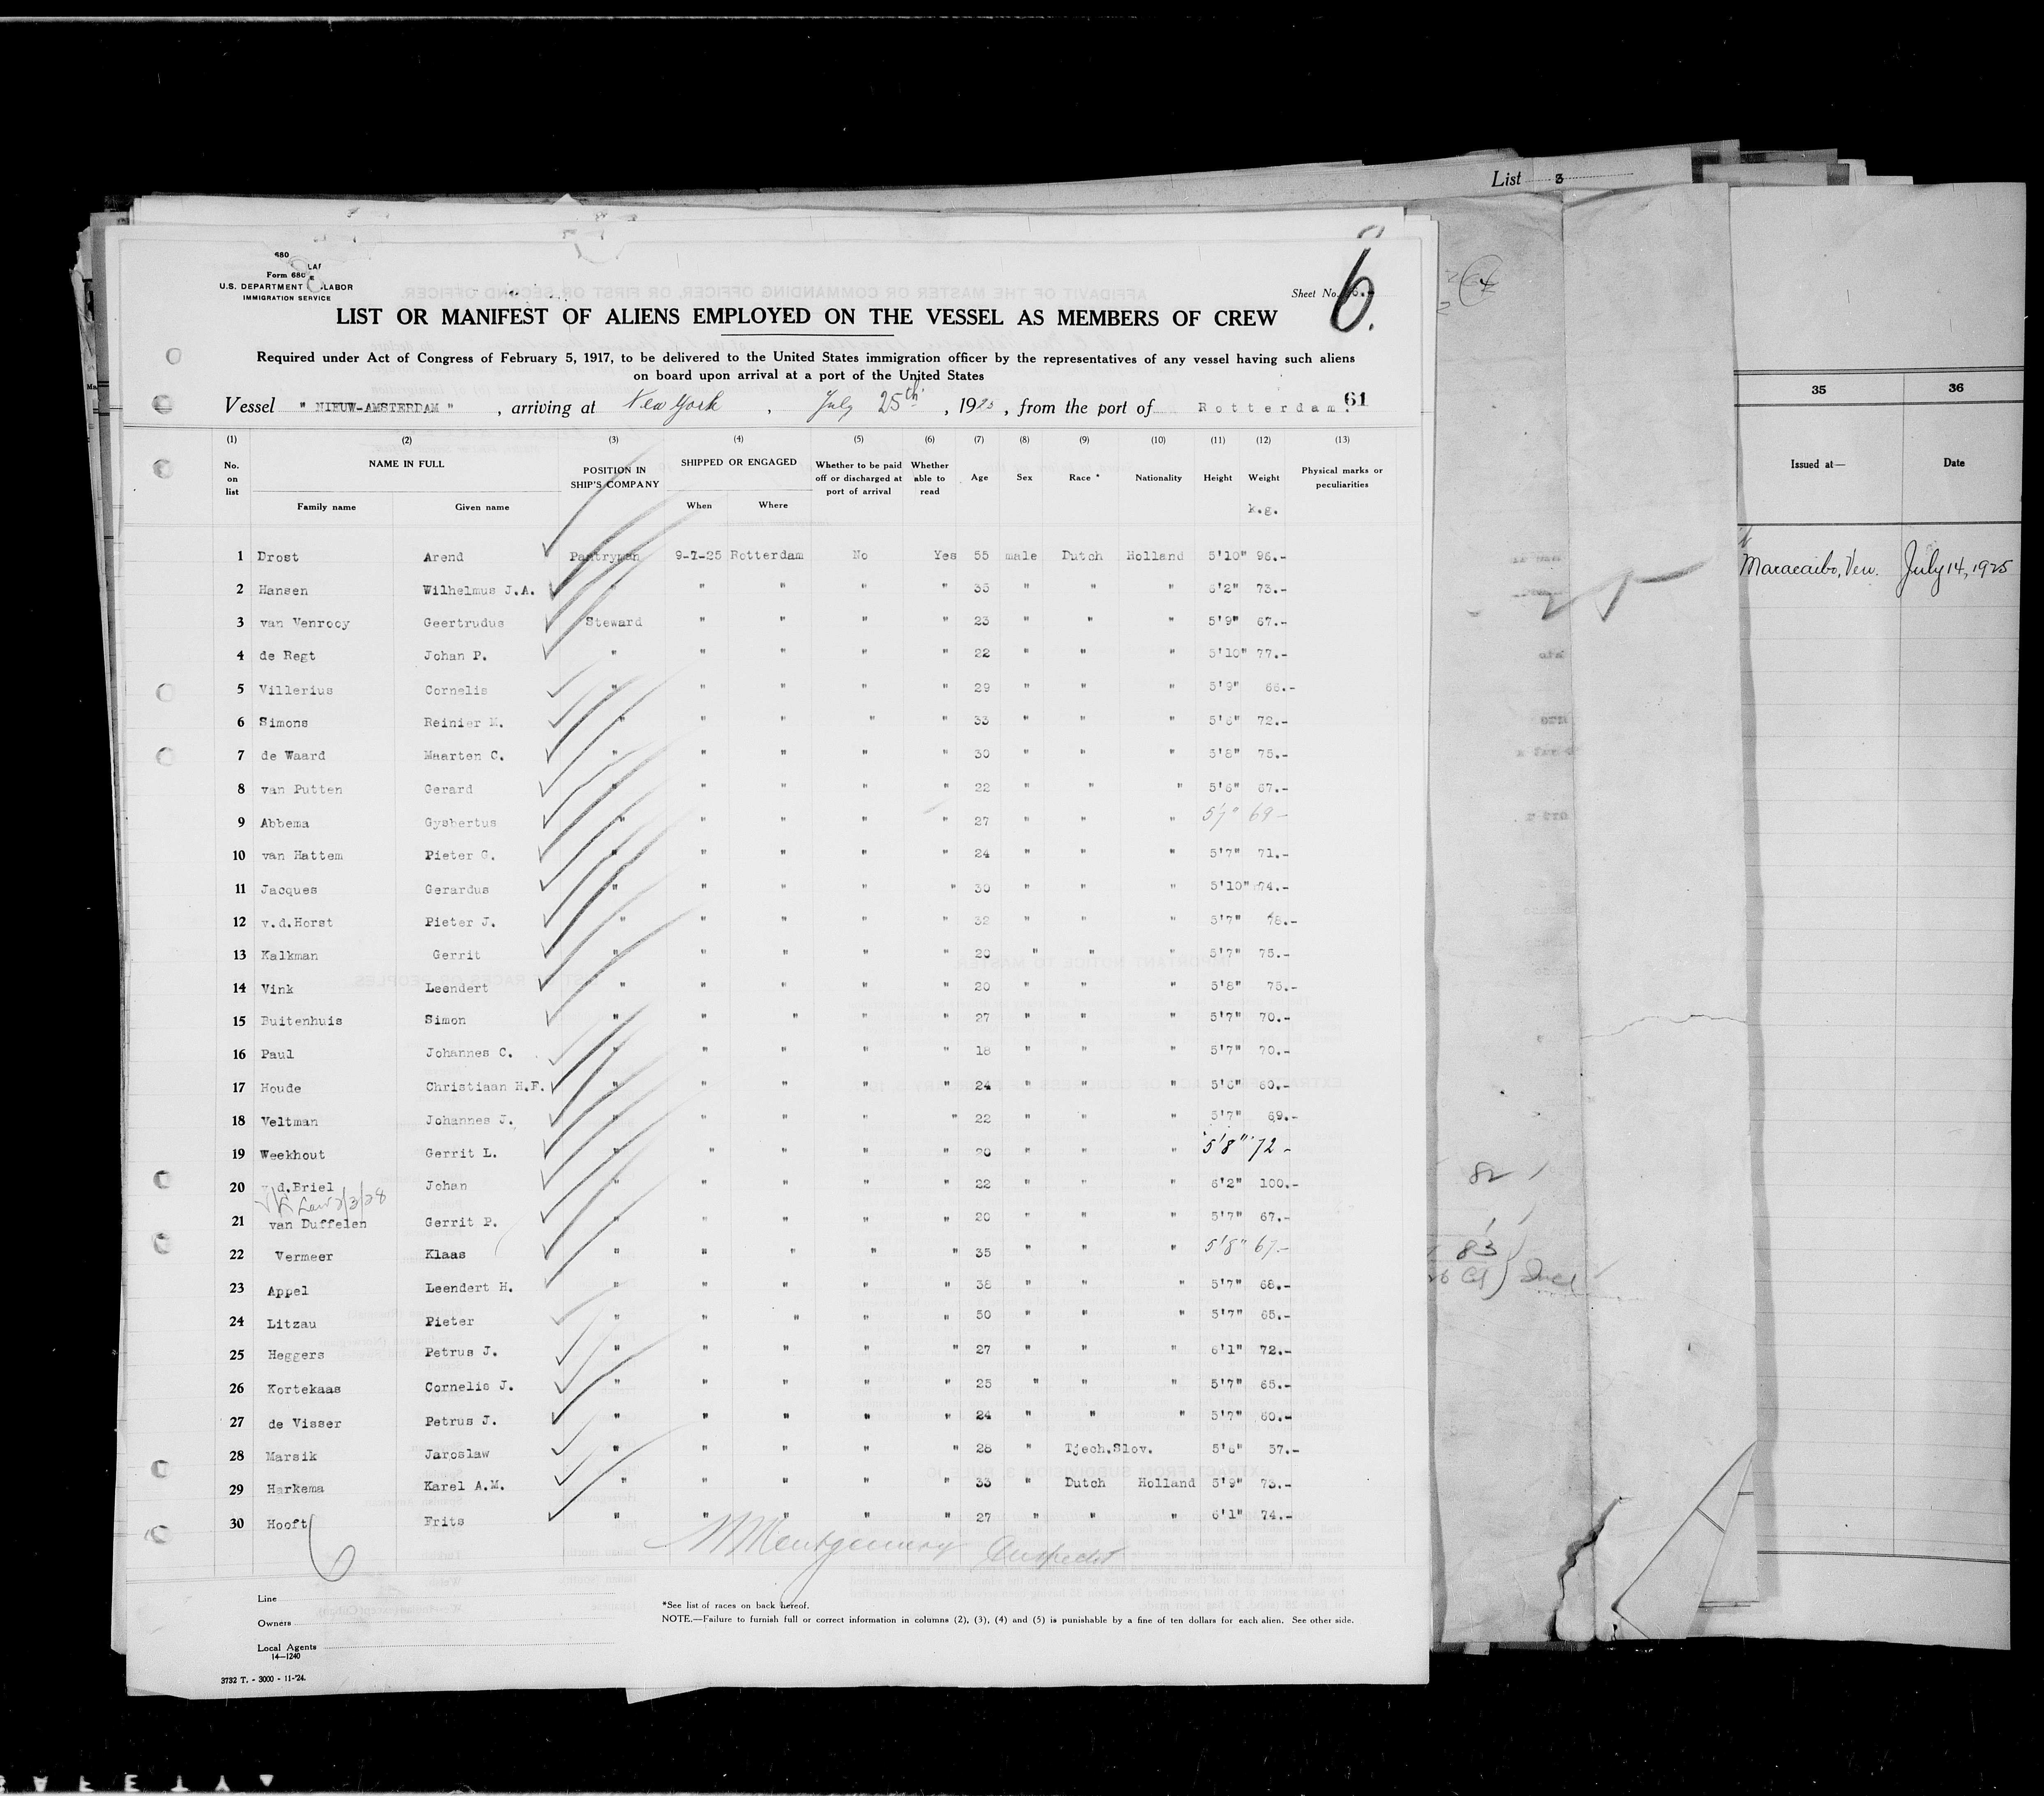 List 3
680
Form 680
U.S. DEPARTMENT LABOR
IMMIGRATION SERVICE
Sheet No. 6.
LIST OR MANIFEST OF ALIENS EMPLOYED ON THE VESSEL AS MEMBERS OF CREW
Required under Act of Congress of February 5, 1917, to be delivered to the United States immigration officer by the representatives of any vessel having such aliens
on board upon arrival at a port of the United States
Vessel " NIEUW-AMSTERDAM " , arriving at New York , July 25th , 1925 , from the port of Rotterdam. 61
(1) (2) (3) (4) (5) (6) (7) (8) (9) (10) (11) (12) (13)
No. on list NAME IN FULL Family name Given name POSITION IN SHIP'S COMPANY SHIPPED OR ENGAGED When Where Whether to be paid off or discharged at port of arrival Whether able to read Age Sex Race * Nationality Height Weight k.g. Physical marks or peculiarities
1 Drost Arend Pantryman 9-7-25 Rotterdam No Yes 55 male Dutch Holland 5'10" 96.-
2 Hansen Wilhelmus J.A. " " " " 35 " " " 5'2" 73.-
3 van Venrooy Geertrudus Steward " " " " 23 " " " 5'9" 67.-
4 de Regt Johan P. " " " " " 22 " " " 5'10" 77.-
5 Villerius Cornelis " " " " " 29 " " " 5'9" 66.-
6 Simons Reinier M. " " " " " 33 " " " 5'6" 72.-
7 de Waard Maarten C. " " " " " 30 " " " 5'8" 75.-
8 van Putten Gerard " " " " " 22 " " " 5'6" 67.-
9 Abbema Gysbertus " " " " " 27 " " " 5'7" 69-
10 van Hattem Pieter G. " " " " " 24 " " " 5'7" 71.-
11 Jacques Gerardus " " " " " 30 " " " 5'10" 74.-
12 v.d.Horst Pieter J. " " " " " 32 " " " 5'7" 78.-
13 Kalkman Gerrit " " " " " 20 " " " 5'7" 75.-
14 Vink Leendert " " " " " 20 " " " 5'8" 75.-
15 Buitenhuis Simon " " " " " 27 " " " 5'7" 70.-
16 Paul Johannes C. " " " " " 18 " " " 5'7" 70.-
17 Houde Christiaan H.F. " " " " " 24 " " " 5'6" 60.-
18 Veltman Johannes J. " " " " " 22 " " " 5'7" 69.-
19 Weekhout Gerrit L. " " " " " 20 " " " 5'8" 72-
20 d.Briel Johan " " " " " 22 " " " 6'2" 100.-
21 van Duffelen Gerrit P. " " " " " 20 " " " 5'7" 67.-
22 Vermeer Klaas " " " " " 35 " " " 5'8" 67.-
23 Appel Leendert H. " " " " " 38 " " " 5'7" 68.-
24 Litzau Pieter " " " " " 50 " " " 5'7" 65.-
25 Heggers Petrus J. " " " " " 27 " " " 6'1" 72.-
26 Kortekaas Cornelis J. " " " " " 25 " " " 5'7" 65.-
27 de Visser Petrus J. " " " " " 24 " " " 5'7" 60.-
28 Marsik Jaroslaw " " " " " 28 " Tjech.Slov. 5'6" 57.-
29 Harkema Karel A.M. " " " " " 33 " Dutch Holland 5'9" 73.-
30 Hooft Frits " " " " " 27 " " " 6'1" 74.-
Montgomery
Line
Owners
Local Agents
14—1240
3732 T. - 3000 - 11-'24.
*See list of races on back hereof.
NOTE.—Failure to furnish full or correct information in columns (2), (3), (4) and (5) is punishable by a fine of ten dollars for each alien. See other side.
82
83
35 36
Issued at— Date
Maracaibo, Ven. July 14, 1925
SAFETY